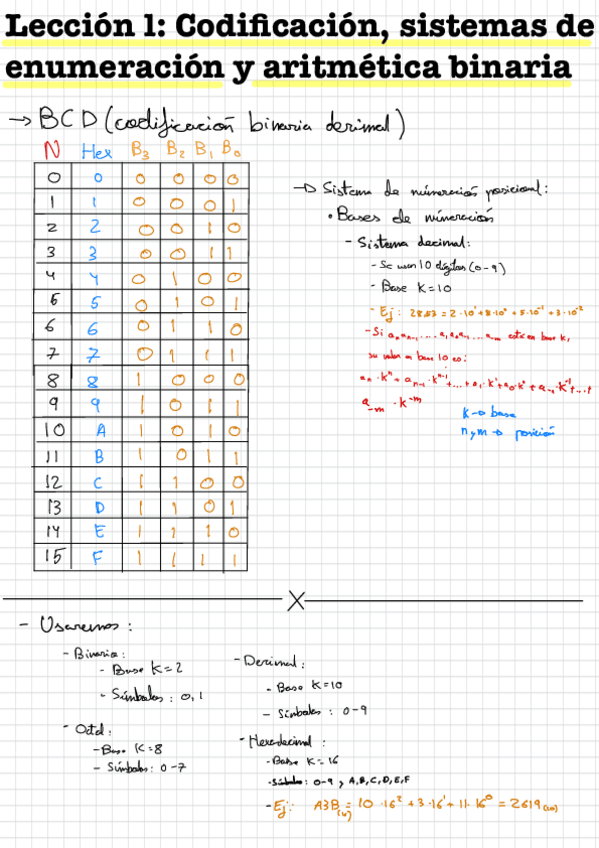 Lección 1: Codificación, sistemas de
enumeración y aritmética binaria
→ BCD (codificación binaria decimal)
N Hex B3 B2 B1 B0
0 0 0 0 0 0
1 1 0 0 0 1
2 2 0 0 1 0
3 3 0 0 1 1
4 4 0 1 0 0
5 5 0 1 0 1
6 6 0 1 1 0
7 7 0 1 1 1
8 8 1 0 0 0
9 9 1 0 1 1
10 A 1 0 1 0
11 B 1 0 1 1
12 C 1 1 0 0
13 D 1 1 0 1
14 E 1 1 1 0
15 F 1 1 1 1
→ Sistema de numeración posicional:
• Bases de numeración
- Sistema decimal:
- Se usan 10 dígitos (0-9)
- Base K=10
- Ej: 28.53 = 2·10¹ + 8·10⁰ + 5·10⁻¹ + 3·10⁻²
- Si aₙaₙ₋₁ ... a₁a₀a₋₁ ... a₋ₘ está en base k,
su valor en base 10 es:
aₙ·kⁿ + aₙ₋₁·kⁿ⁻¹ + ... + a₁·k¹ + a₀·k⁰ + a₋₁·k⁻¹ + ... +
a₋ₘ·k⁻ᵐ
k → base
n y m → posición
- Usaremos:
- Binario:
- Base K=2
- Símbolos: 0,1
- Octal:
- Base K=8
- Símbolos: 0-7
- Decimal:
- Base K=10
- Símbolos: 0-9
- Hexadecimal:
- Base K=16
- Símbolos: 0-9 y A,B,C,D,E,F
- Ej: A3B₍₁₆₎ = 10·16² + 3·16¹ + 11·16⁰ = 2619₍₁₀₎